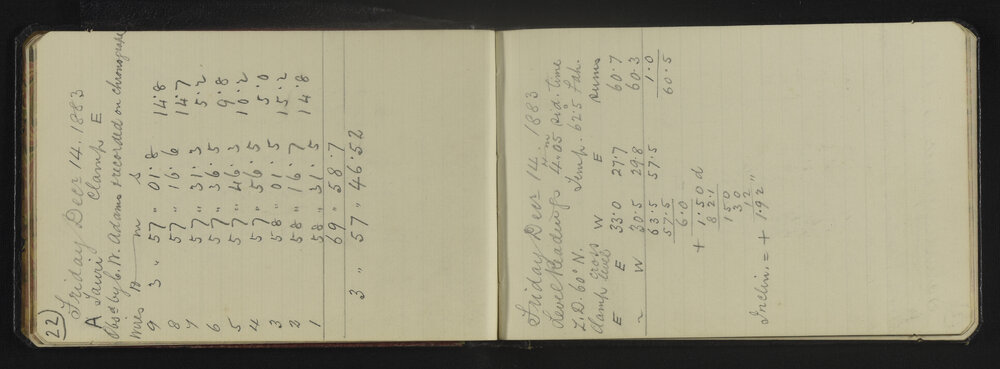 22)
Friday Decr 14. 1883
A Tauri Clamp E
Obsd by C. W. Adams & recorded on chronograph
Wires H m s
9 3 " 57 " 01.8 14.8
8 57 " 16.6 14.7
7 57 " 31.3 5.2
6 57 " 36.5 9.8
5 57 " 46.3 10.2
4 57 " 56.5 5.0
3 58 " 01.5 15.2
2 58 " 16.7 14.8
1 58 " 31.5
69 " 58.7
3 " 57 " 46.52
Friday Decr 14. 1883
Level Readings 4.05 sid. time
Z.D. 60° N. Temp. 62.5 Fah.
Clamp Cross level W E Sums
E E 33.0 27.7 60.7
~ W 30.5 29.8 60.3
63.5 57.5 1.0
57.5 60.5
6.0
+ 1.50 d
82.1
150
30
12
Inclin. = + 1.92"